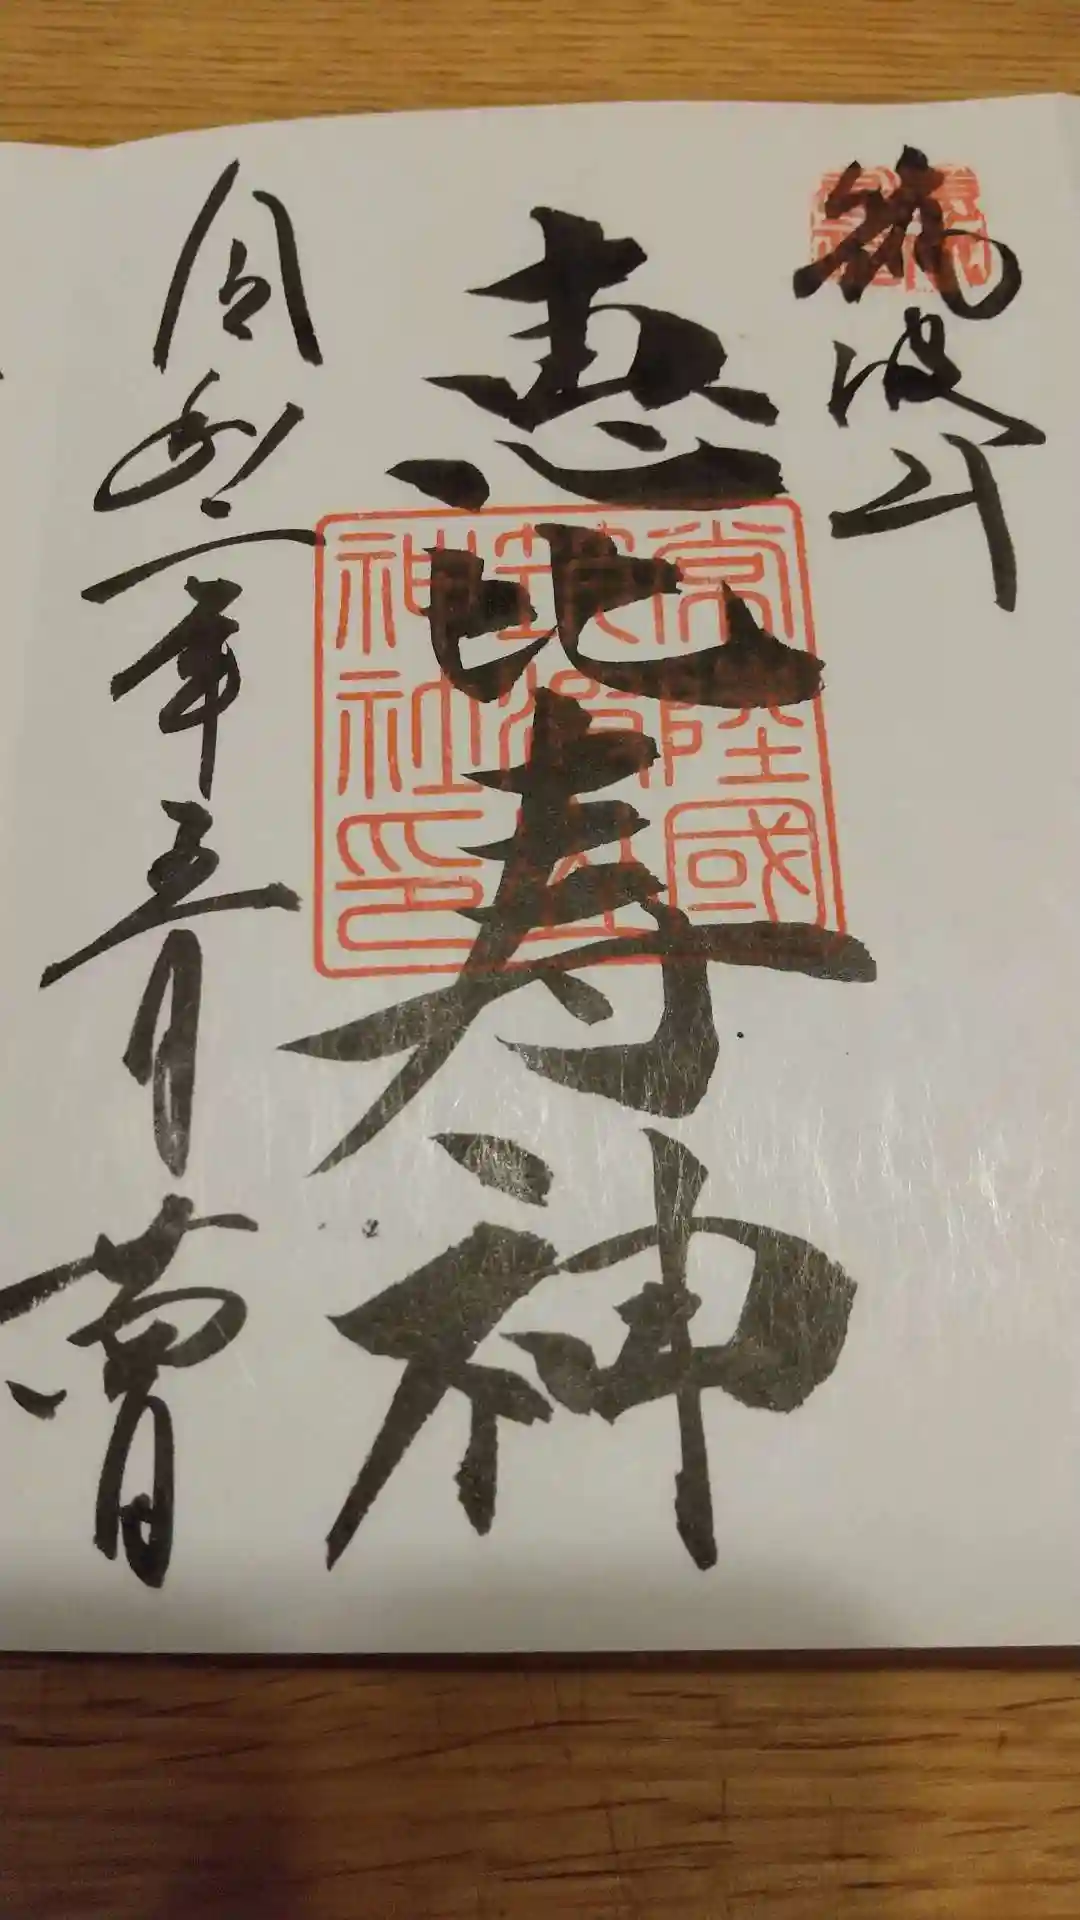 筑波山
恵比寿神
常陸國
筑波山
神社印
令和二年五月